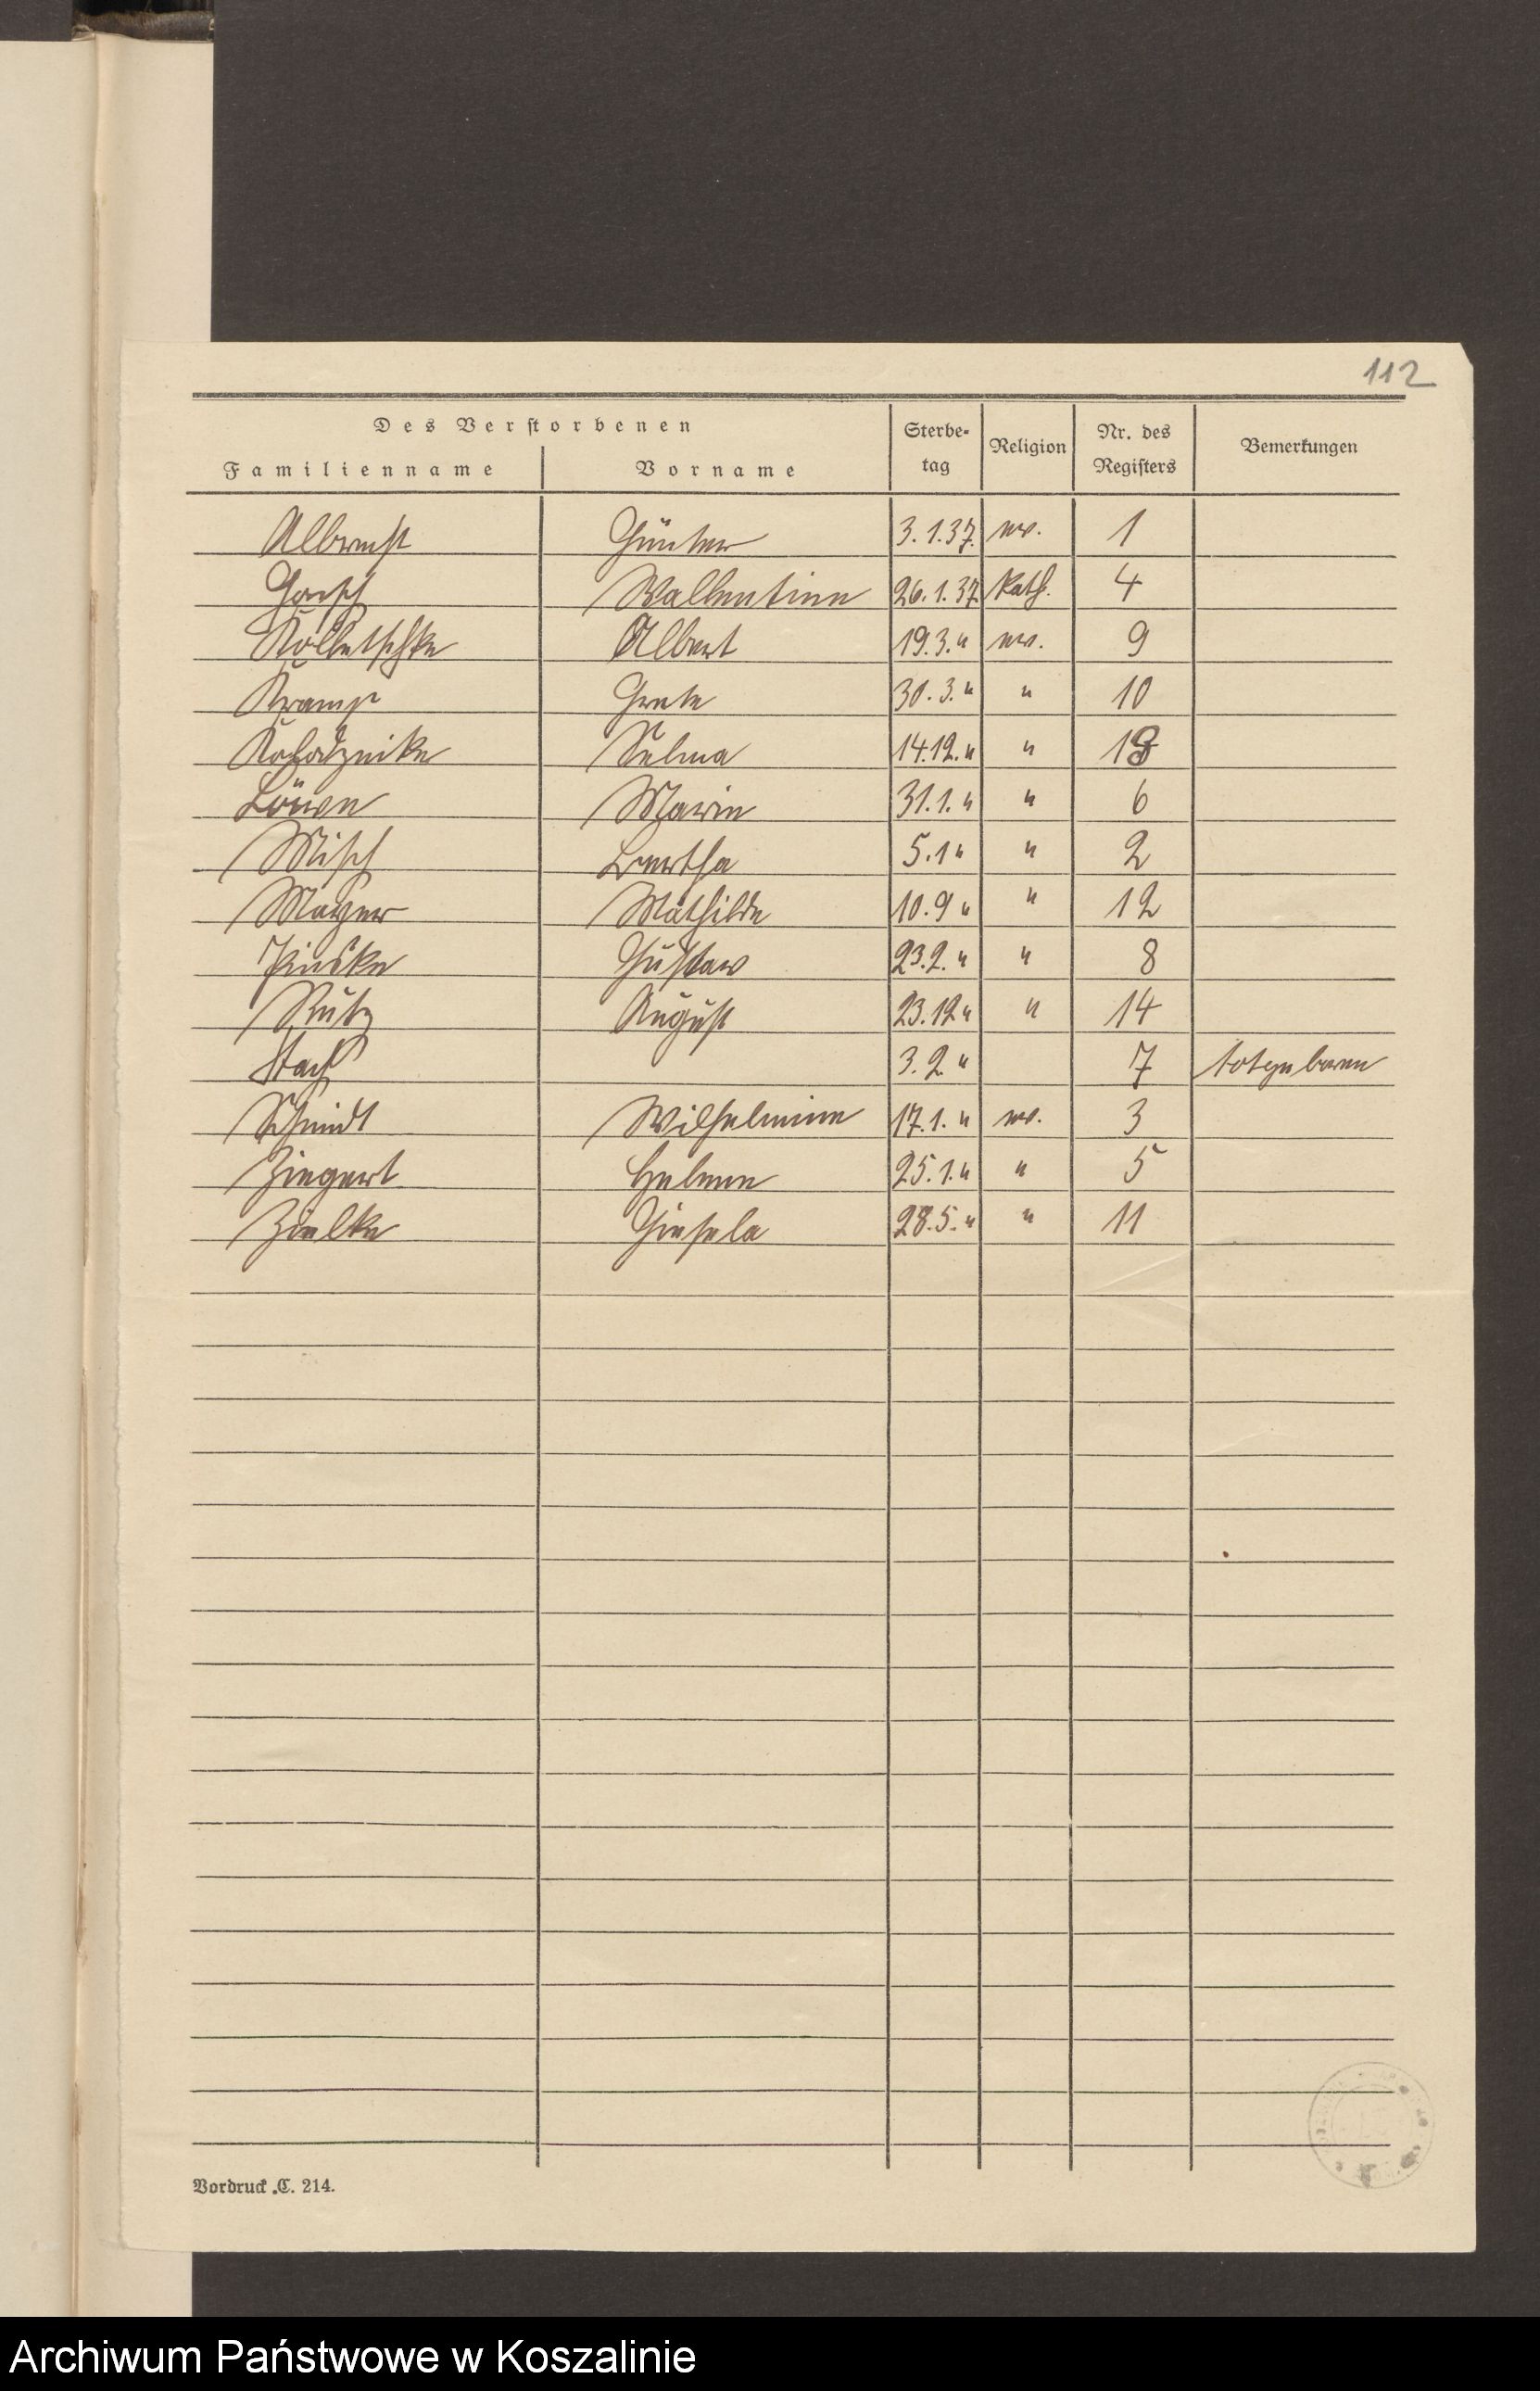 112
Des Verstorbenen
Familienname Vorname Sterbe-tag Religion Nr. des Registers Bemerkungen
Albrecht Günter 3.1.37. ev. 1
Wallentine 26.1.37. kath. 4
Kolletschke Albert 19.3. " ev. 9
Kramp Grete 30.3. " " 10
Selma 14.12. " " 13
Löwe Marie 31.1. " " 6
Misch Bertha 5.1 " " 2
Mayer Mathilde 10.9 " " 12
Pinske Gustaw 23.2. " " 8
Rutz August 23.12 " " 14
Stach 3.2 " 7 totgeboren
Schmidt Wilhelmine 17.1. " ev. 3
Ziegert Helene 25.1. " " 5
Zielke Giesela 28.5. " " 11
Vordruck C. 214.
Archiwum Państwowe w Koszalinie